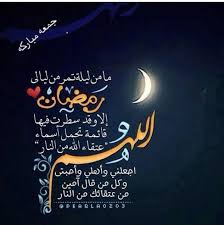 جمعه مباركه
ما من ليلة تمر من ليالي
رمضان
إلا وقد سطرت فيها
قائمة تحمل أسماء
"عتقاء الله من النار"
اللهم
اجعلني وأهلي وأحبتي
وكل من قال آمين
من عتقائك من النار
@PEARLA0203